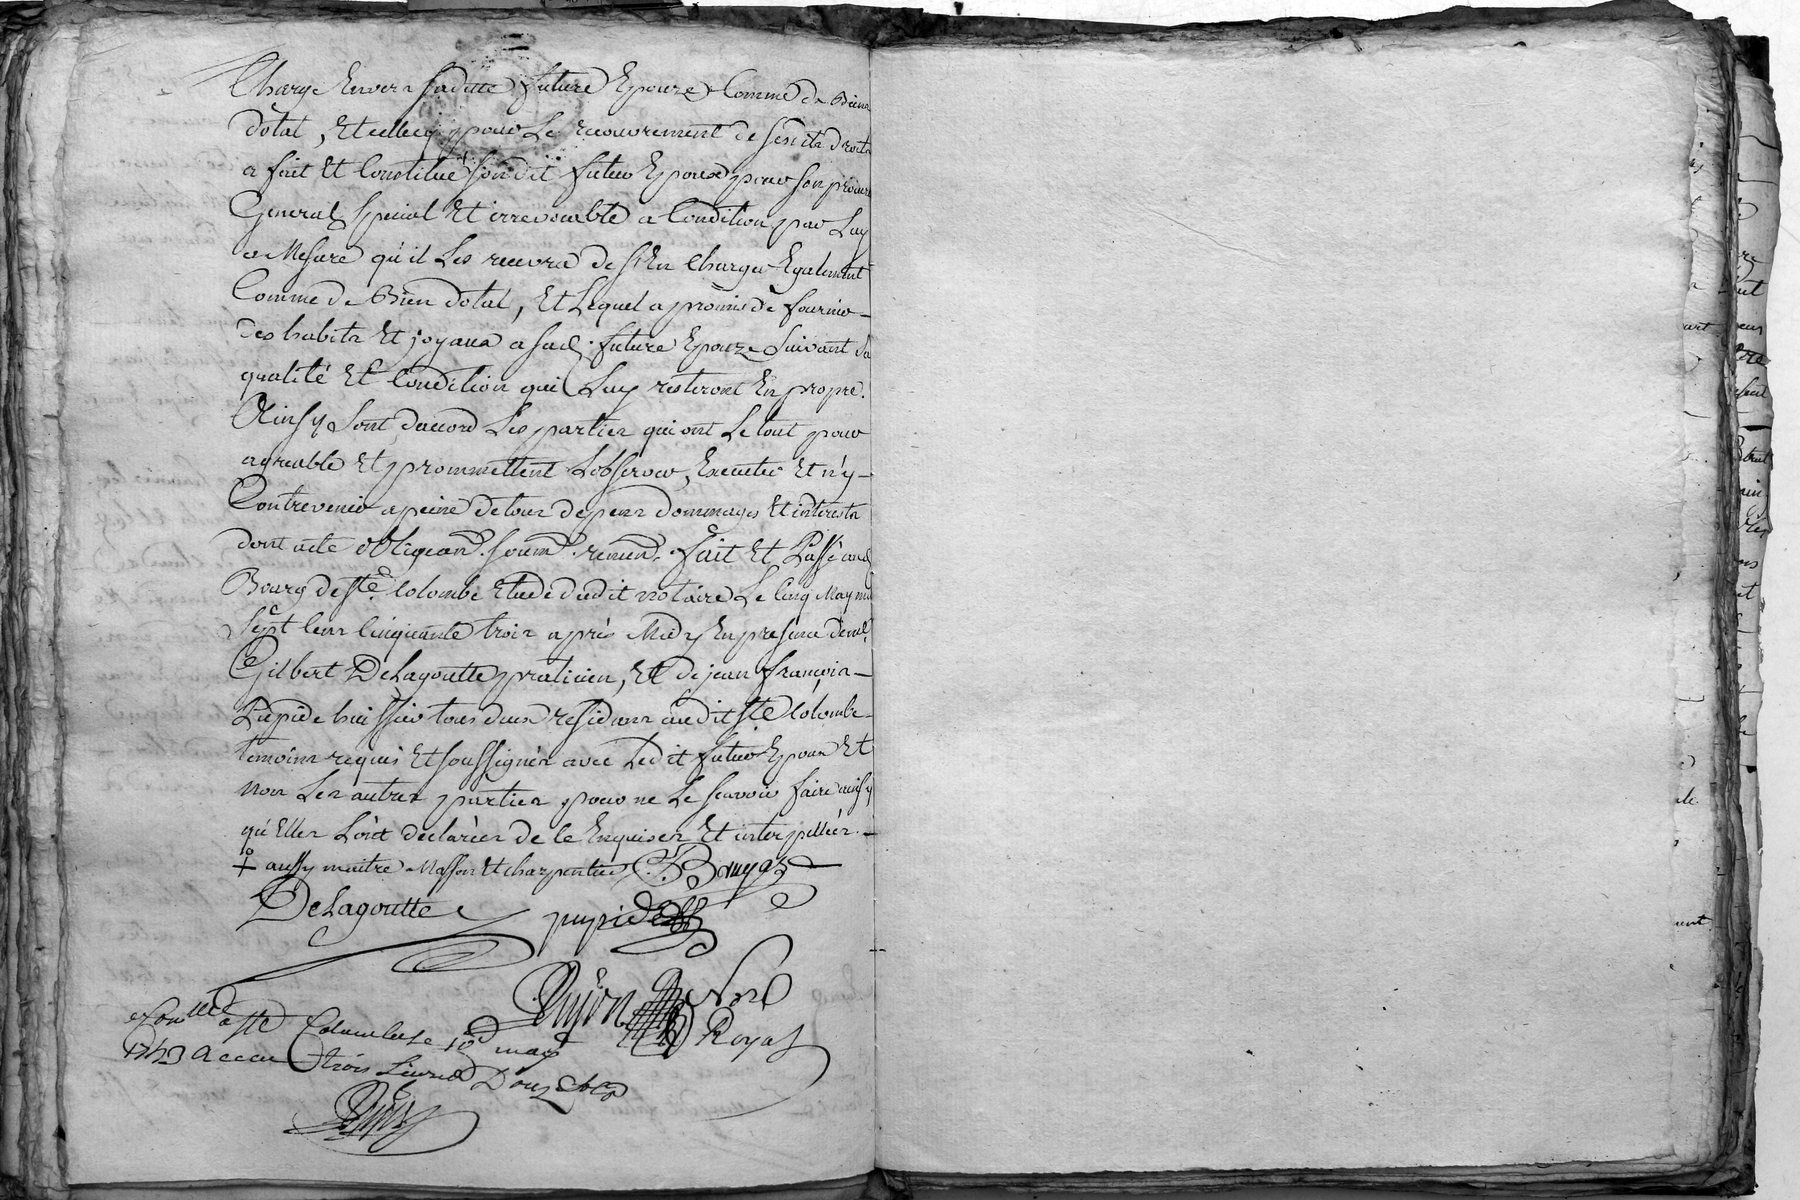 Charge Envers saditte future Epouze Comme de Biens
dotal, Et celle cy pour Le recouvrement de sesdits droits
a fait Et Constitué son dit futur Epoux pour son procur
General special Et irrevocable a Condition par Luy
a Mesure qu'il Les recevra de s'En Charger Egalement
Comme de Bien dotal, Et Lequel a promis de fournir
des habits Et joyaux a sad. future Epouze suivant sa
qualité Et Condition qui Luy resteront En propre.
Ainsy sont daccord Les parties qui ont Le tout pour
agreable Et prommettent Lobserver, Executer Et n'y
Contrevenir a peine de tous depens dommages Et interests
dont acte obligean. soum. renon. fait Et Passé aud
Bourg de Ste Colombe Etude dudit notaire Le Cinq May mil
sept Cens Cinquante trois après Midy En presence de me
Gilbert DeLagoutte praticien, Et de jean françois
Pupide huissier tous deux residans audit Ste Colombe
temoins requis Et soussignés avec Ledit futur Epoux Et
non Les autres parties pour ne Le scavoir faire ainsy
qu'Elles L'ont declarées de ce Enquises Et interpellées.
+ aussy maitre Masson Et charpentier
DeLagoutte pupide
Nore
Royal
Conllé a Ste Colombe le 10 may
1753 Receu trois Livres Douze